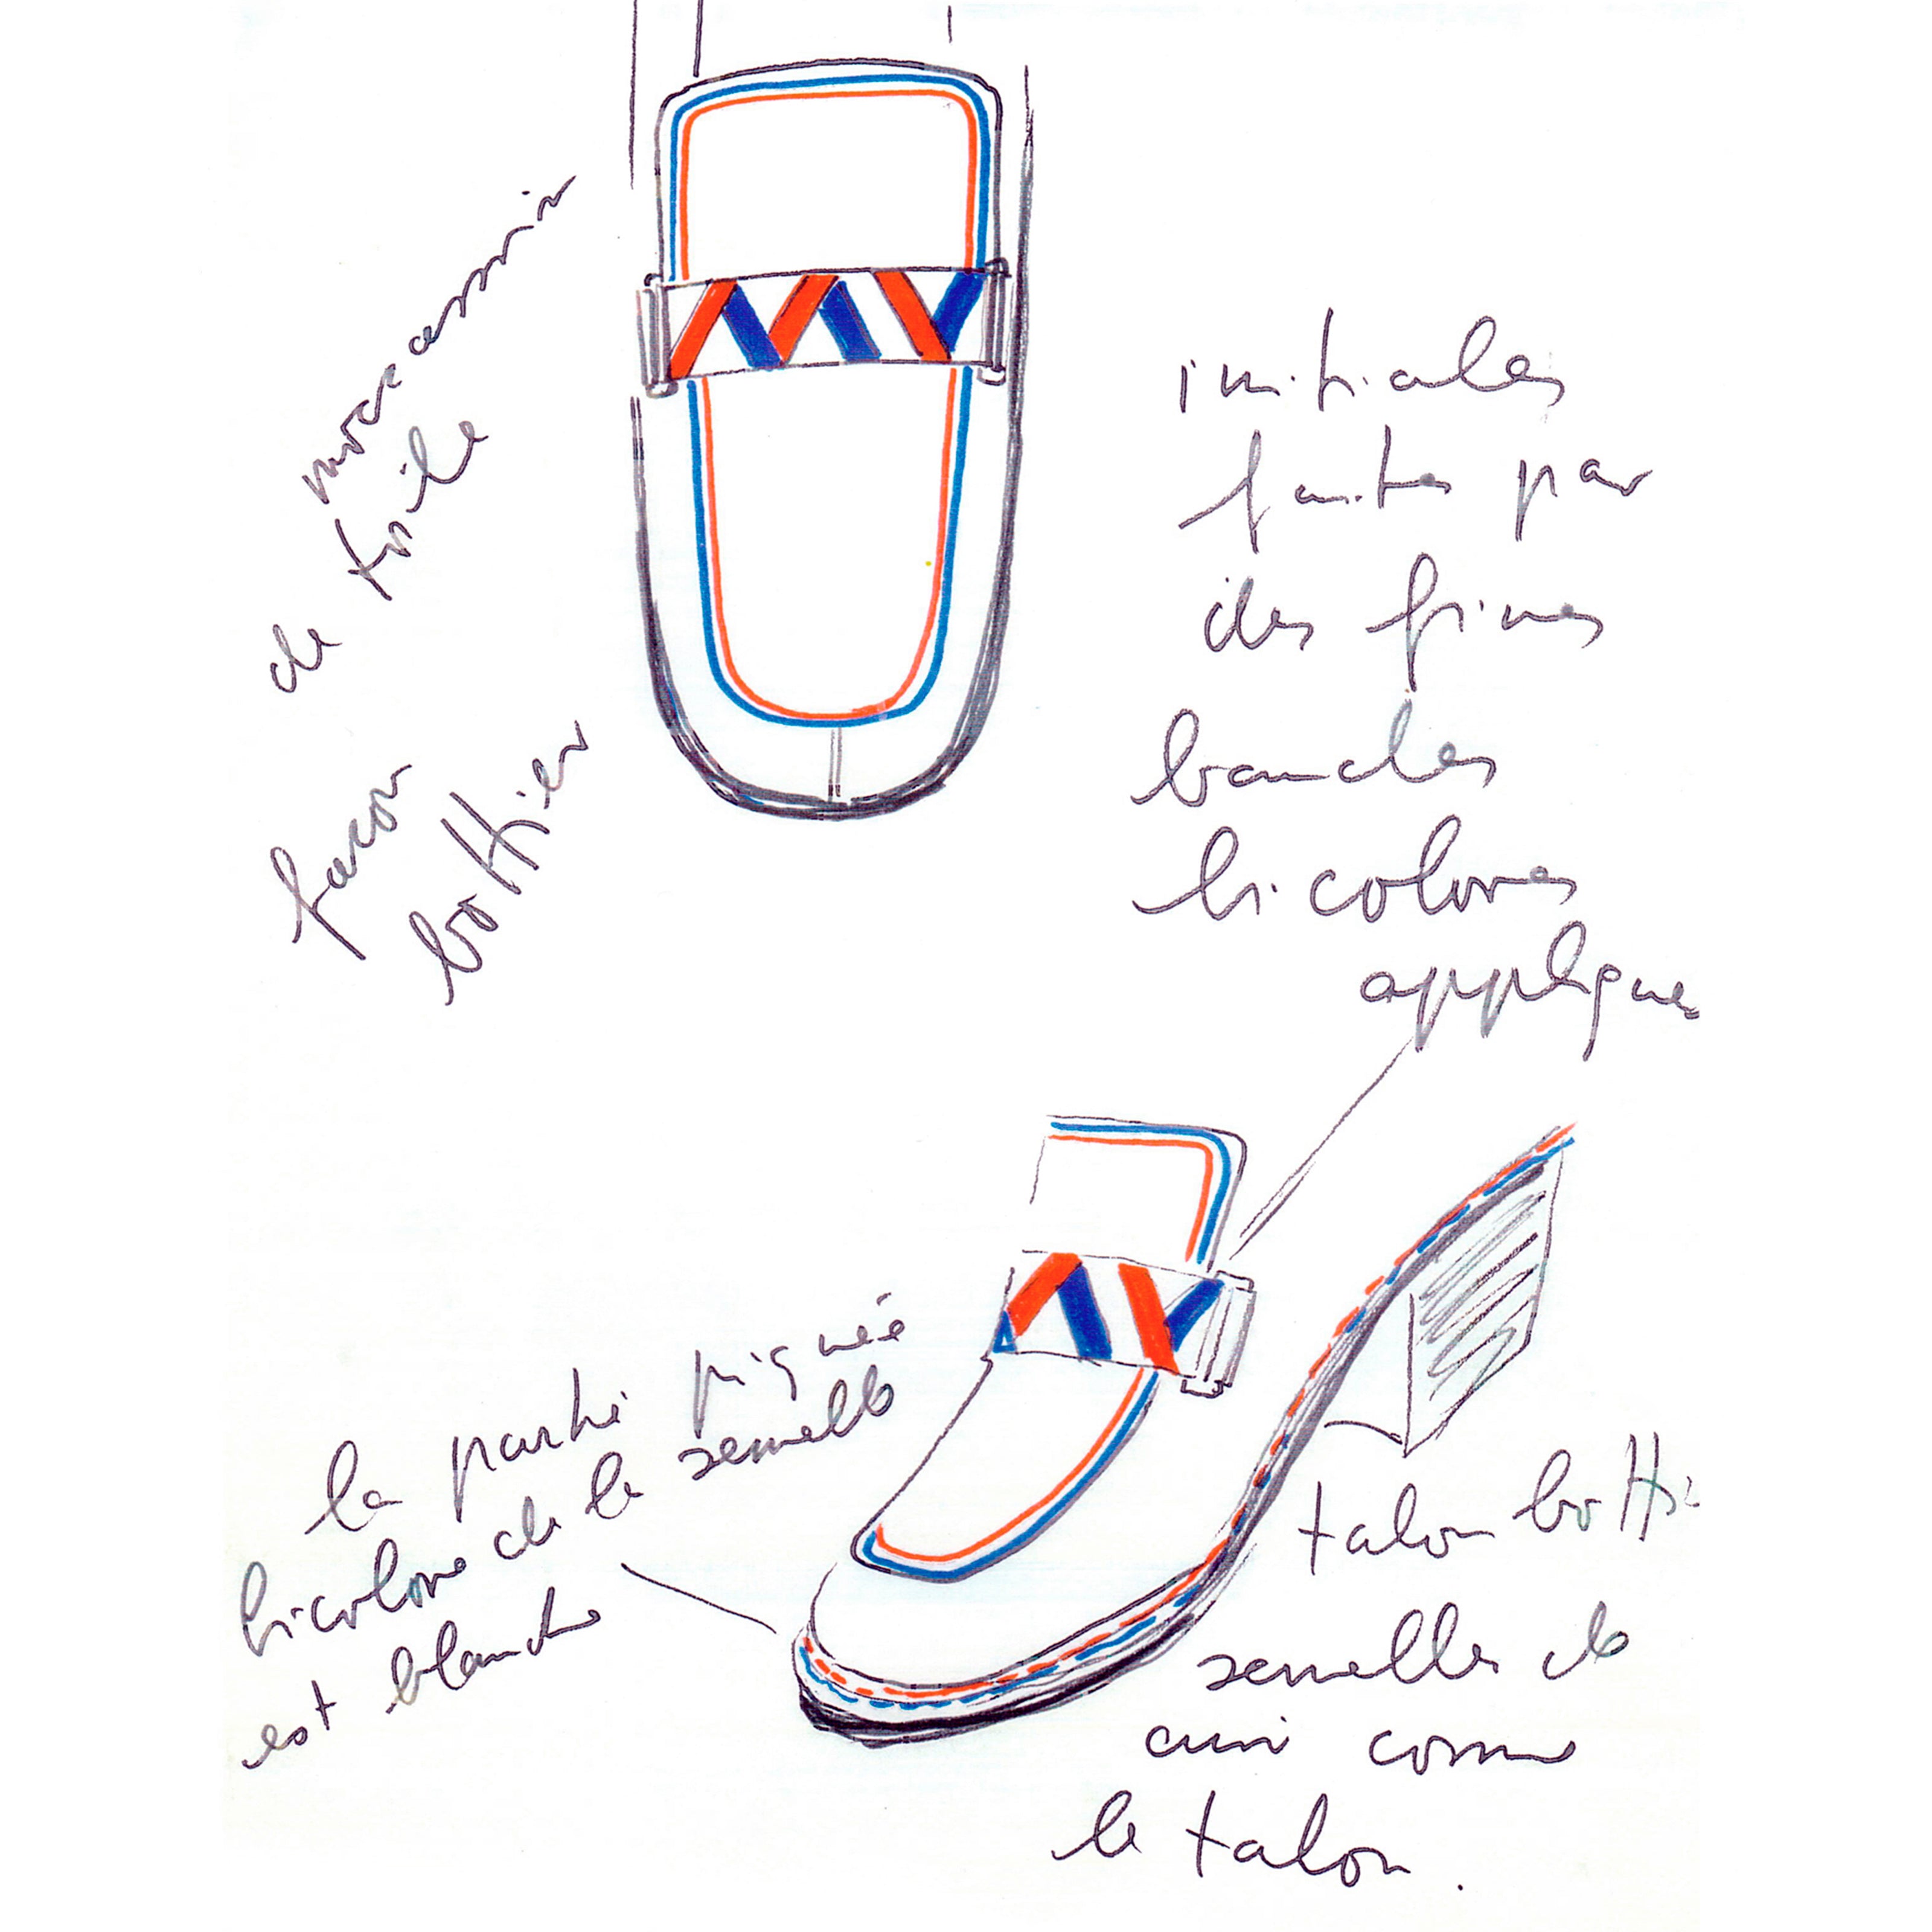 mocassin
de toile
facon
bottier
MV
initiales
faites par
des fines
bandes
bicolores
appliques
la partie piquée
bicolore de la semelle
est blanche
talon botti
semelle de
cuir comme
le talon.